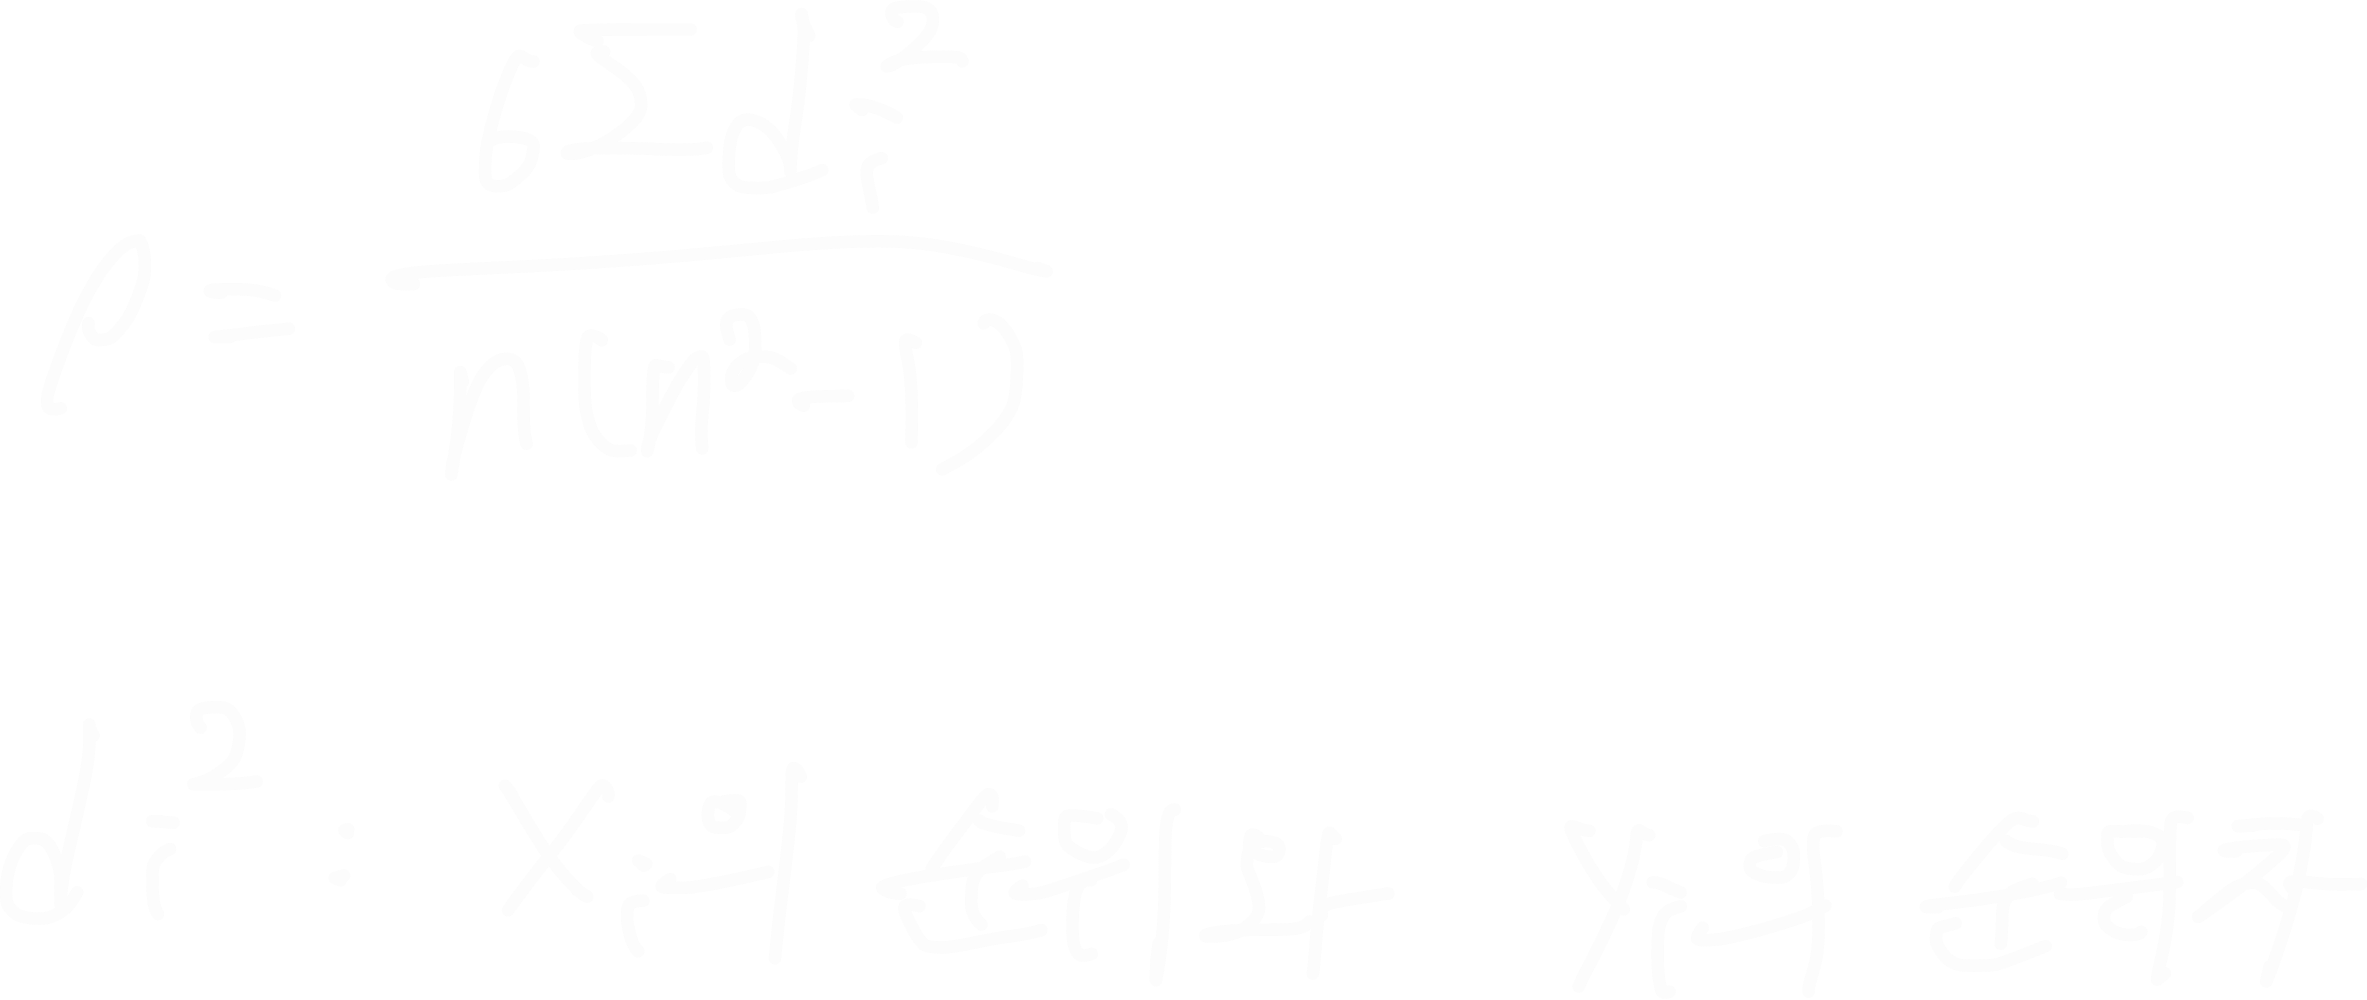 ρ = 6Σdᵢ² / n(n²-1)
dᵢ² : Xᵢ의 순위와 Yᵢ의 순위차